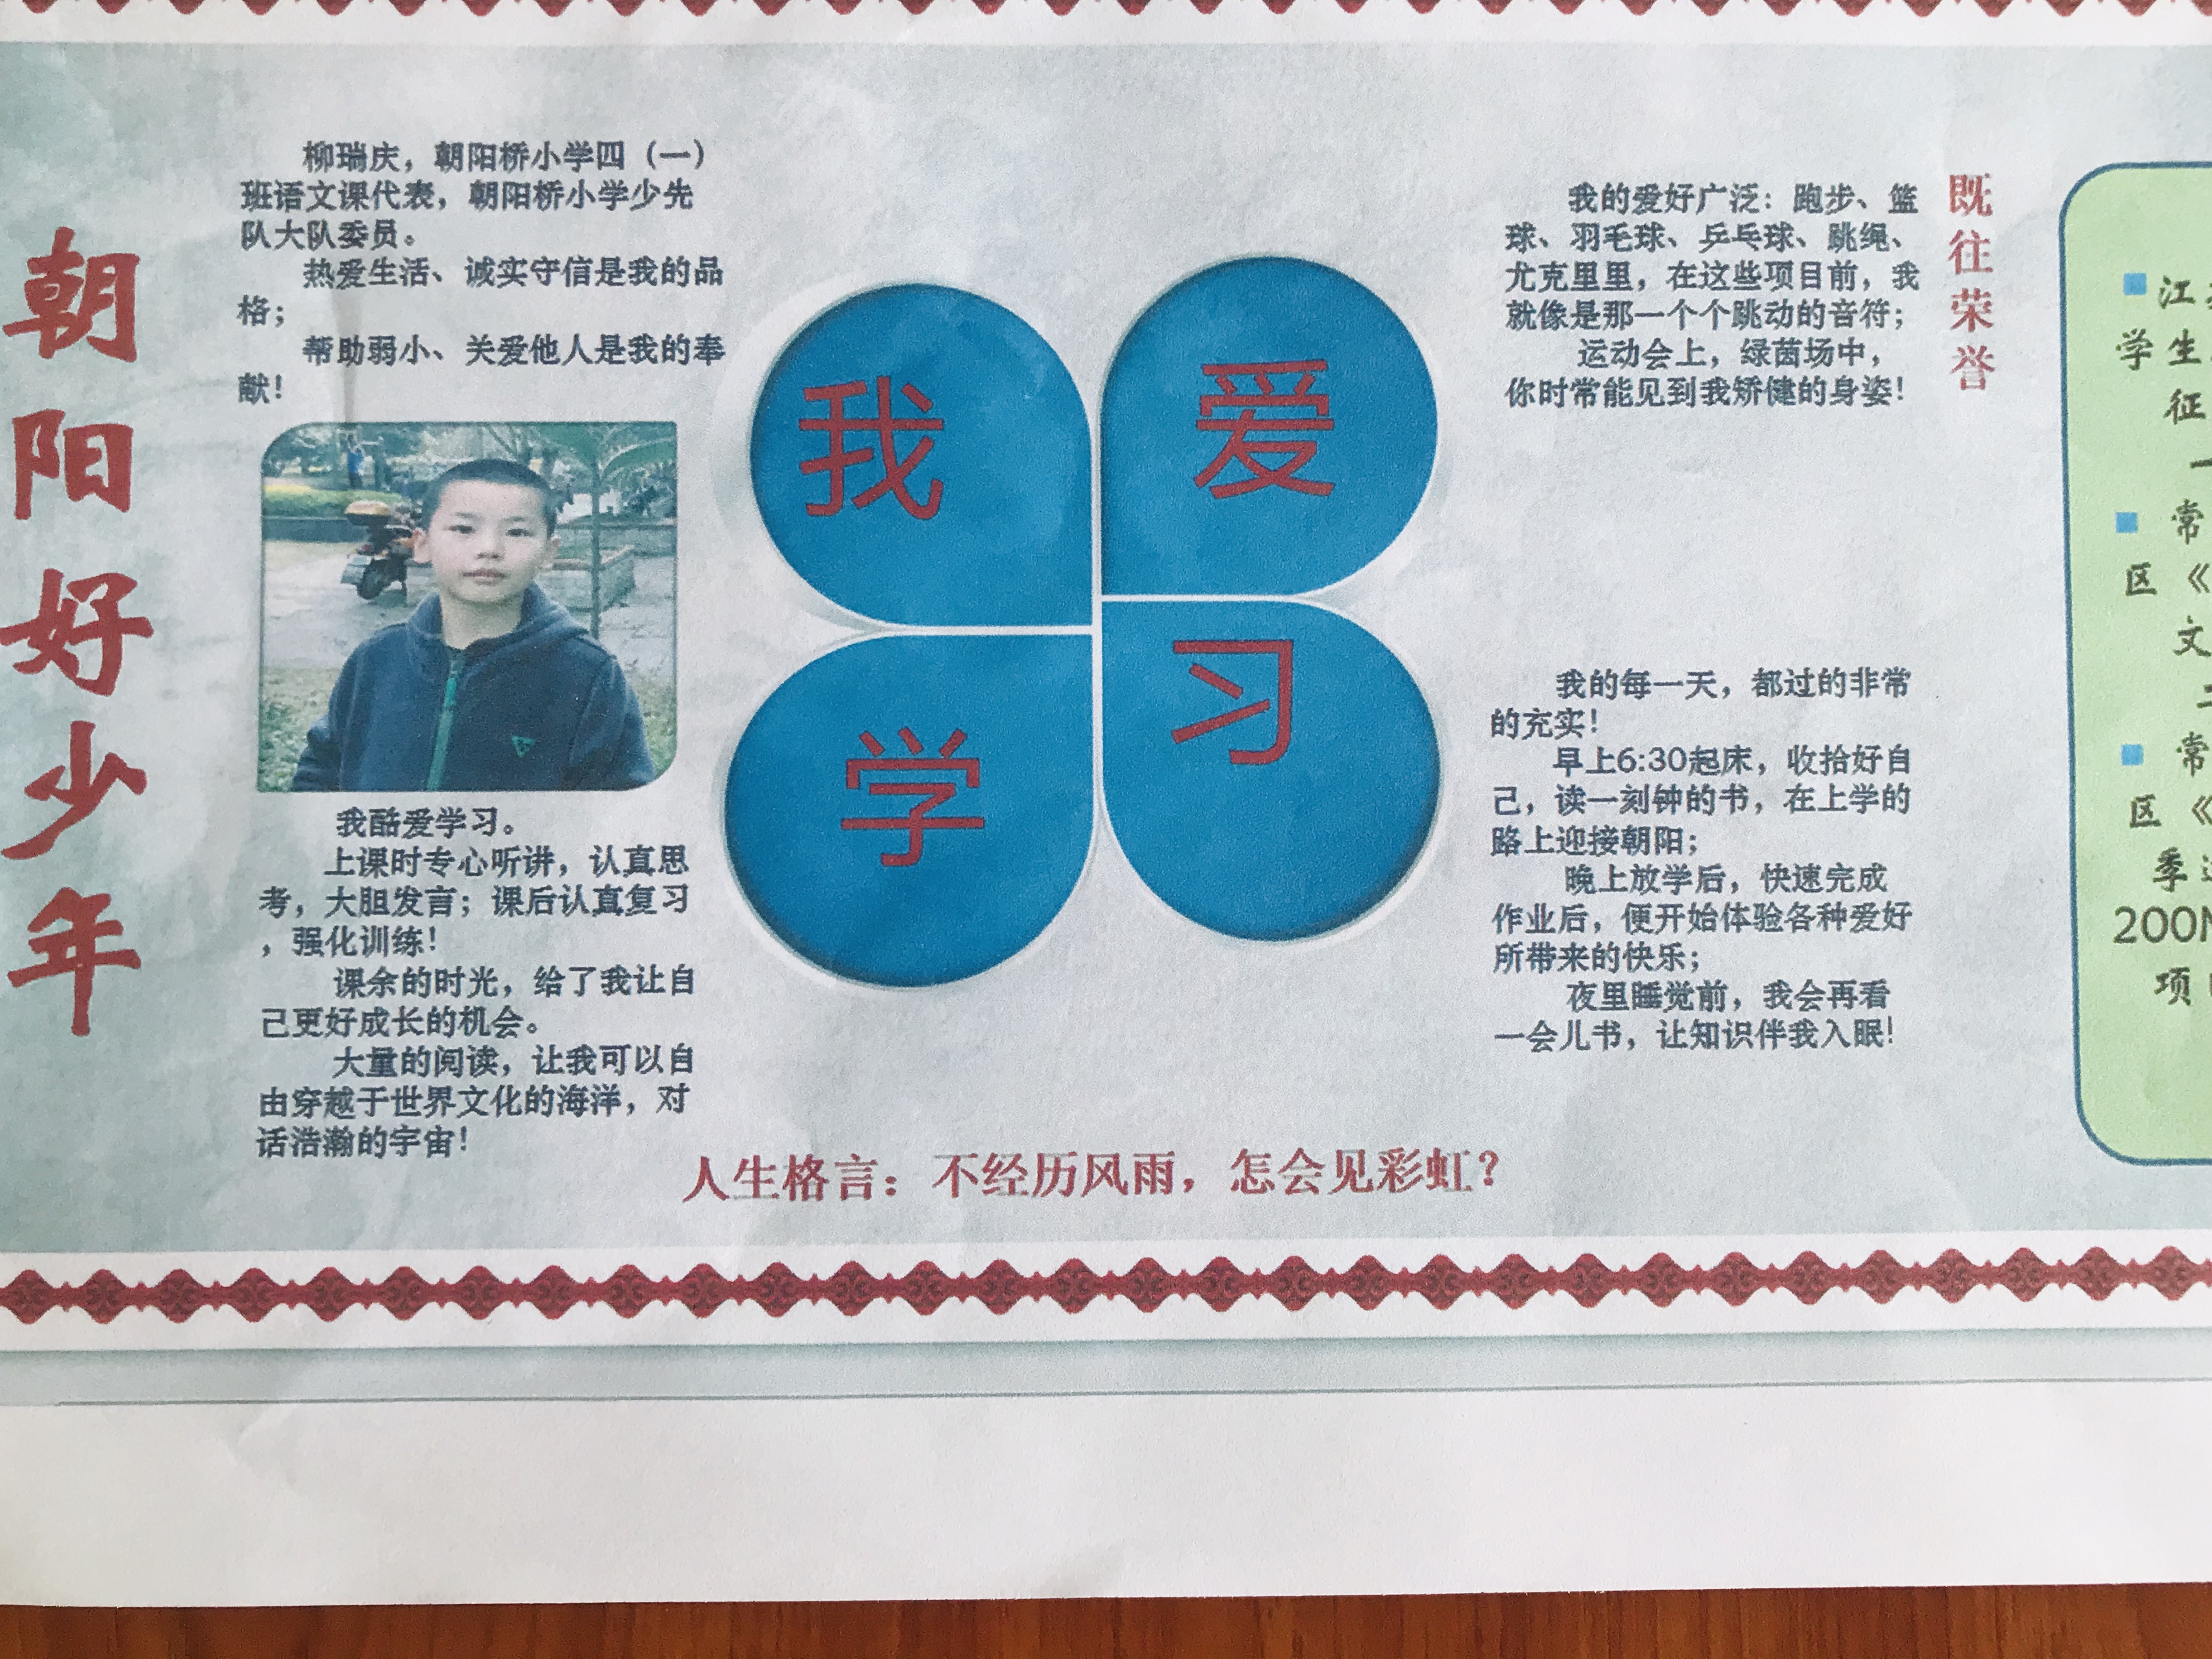 朝阳好少年
柳瑞庆，朝阳桥小学四（一）
班语文课代表，朝阳桥小学少先
队大队委员。
热爱生活、诚实守信是我的品
格；
帮助弱小、关爱他人是我的奉
献！
我酷爱学习。
上课时专心听讲，认真思
考，大胆发言；课后认真复习
，强化训练！
课余的时光，给了我让自
己更好成长的机会。
大量的阅读，让我可以自
由穿越于世界文化的海洋，对
话浩瀚的宇宙！
我
爱
学
习
我的爱好广泛：跑步、篮
球、羽毛球、乒乓球、跳绳、
尤克里里，在这些项目前，我
就像是那一个个跳动的音符；
运动会上，绿茵场中，
你时常能见到我矫健的身姿！
我的每一天，都过的非常
的充实！
早上6:30起床，收拾好自
己，读一刻钟的书，在上学的
路上迎接朝阳；
晚上放学后，快速完成
作业后，便开始体验各种爱好
所带来的快乐；
夜里睡觉前，我会再看
一会儿书，让知识伴我入眠！
人生格言：不经历风雨，怎会见彩虹？
既往荣誉
江
学生
征
常
区《
文
常
区《
季
200
项